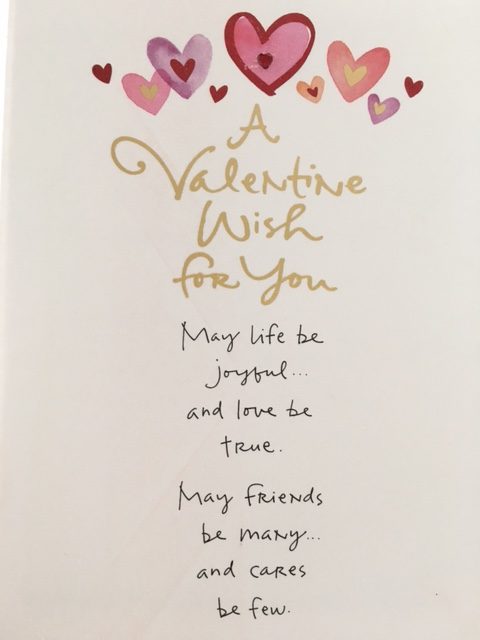 A
Valentine
Wish
for You
May life be
joyful...
and love be
true.
May friends
be many...
and cares
be few.